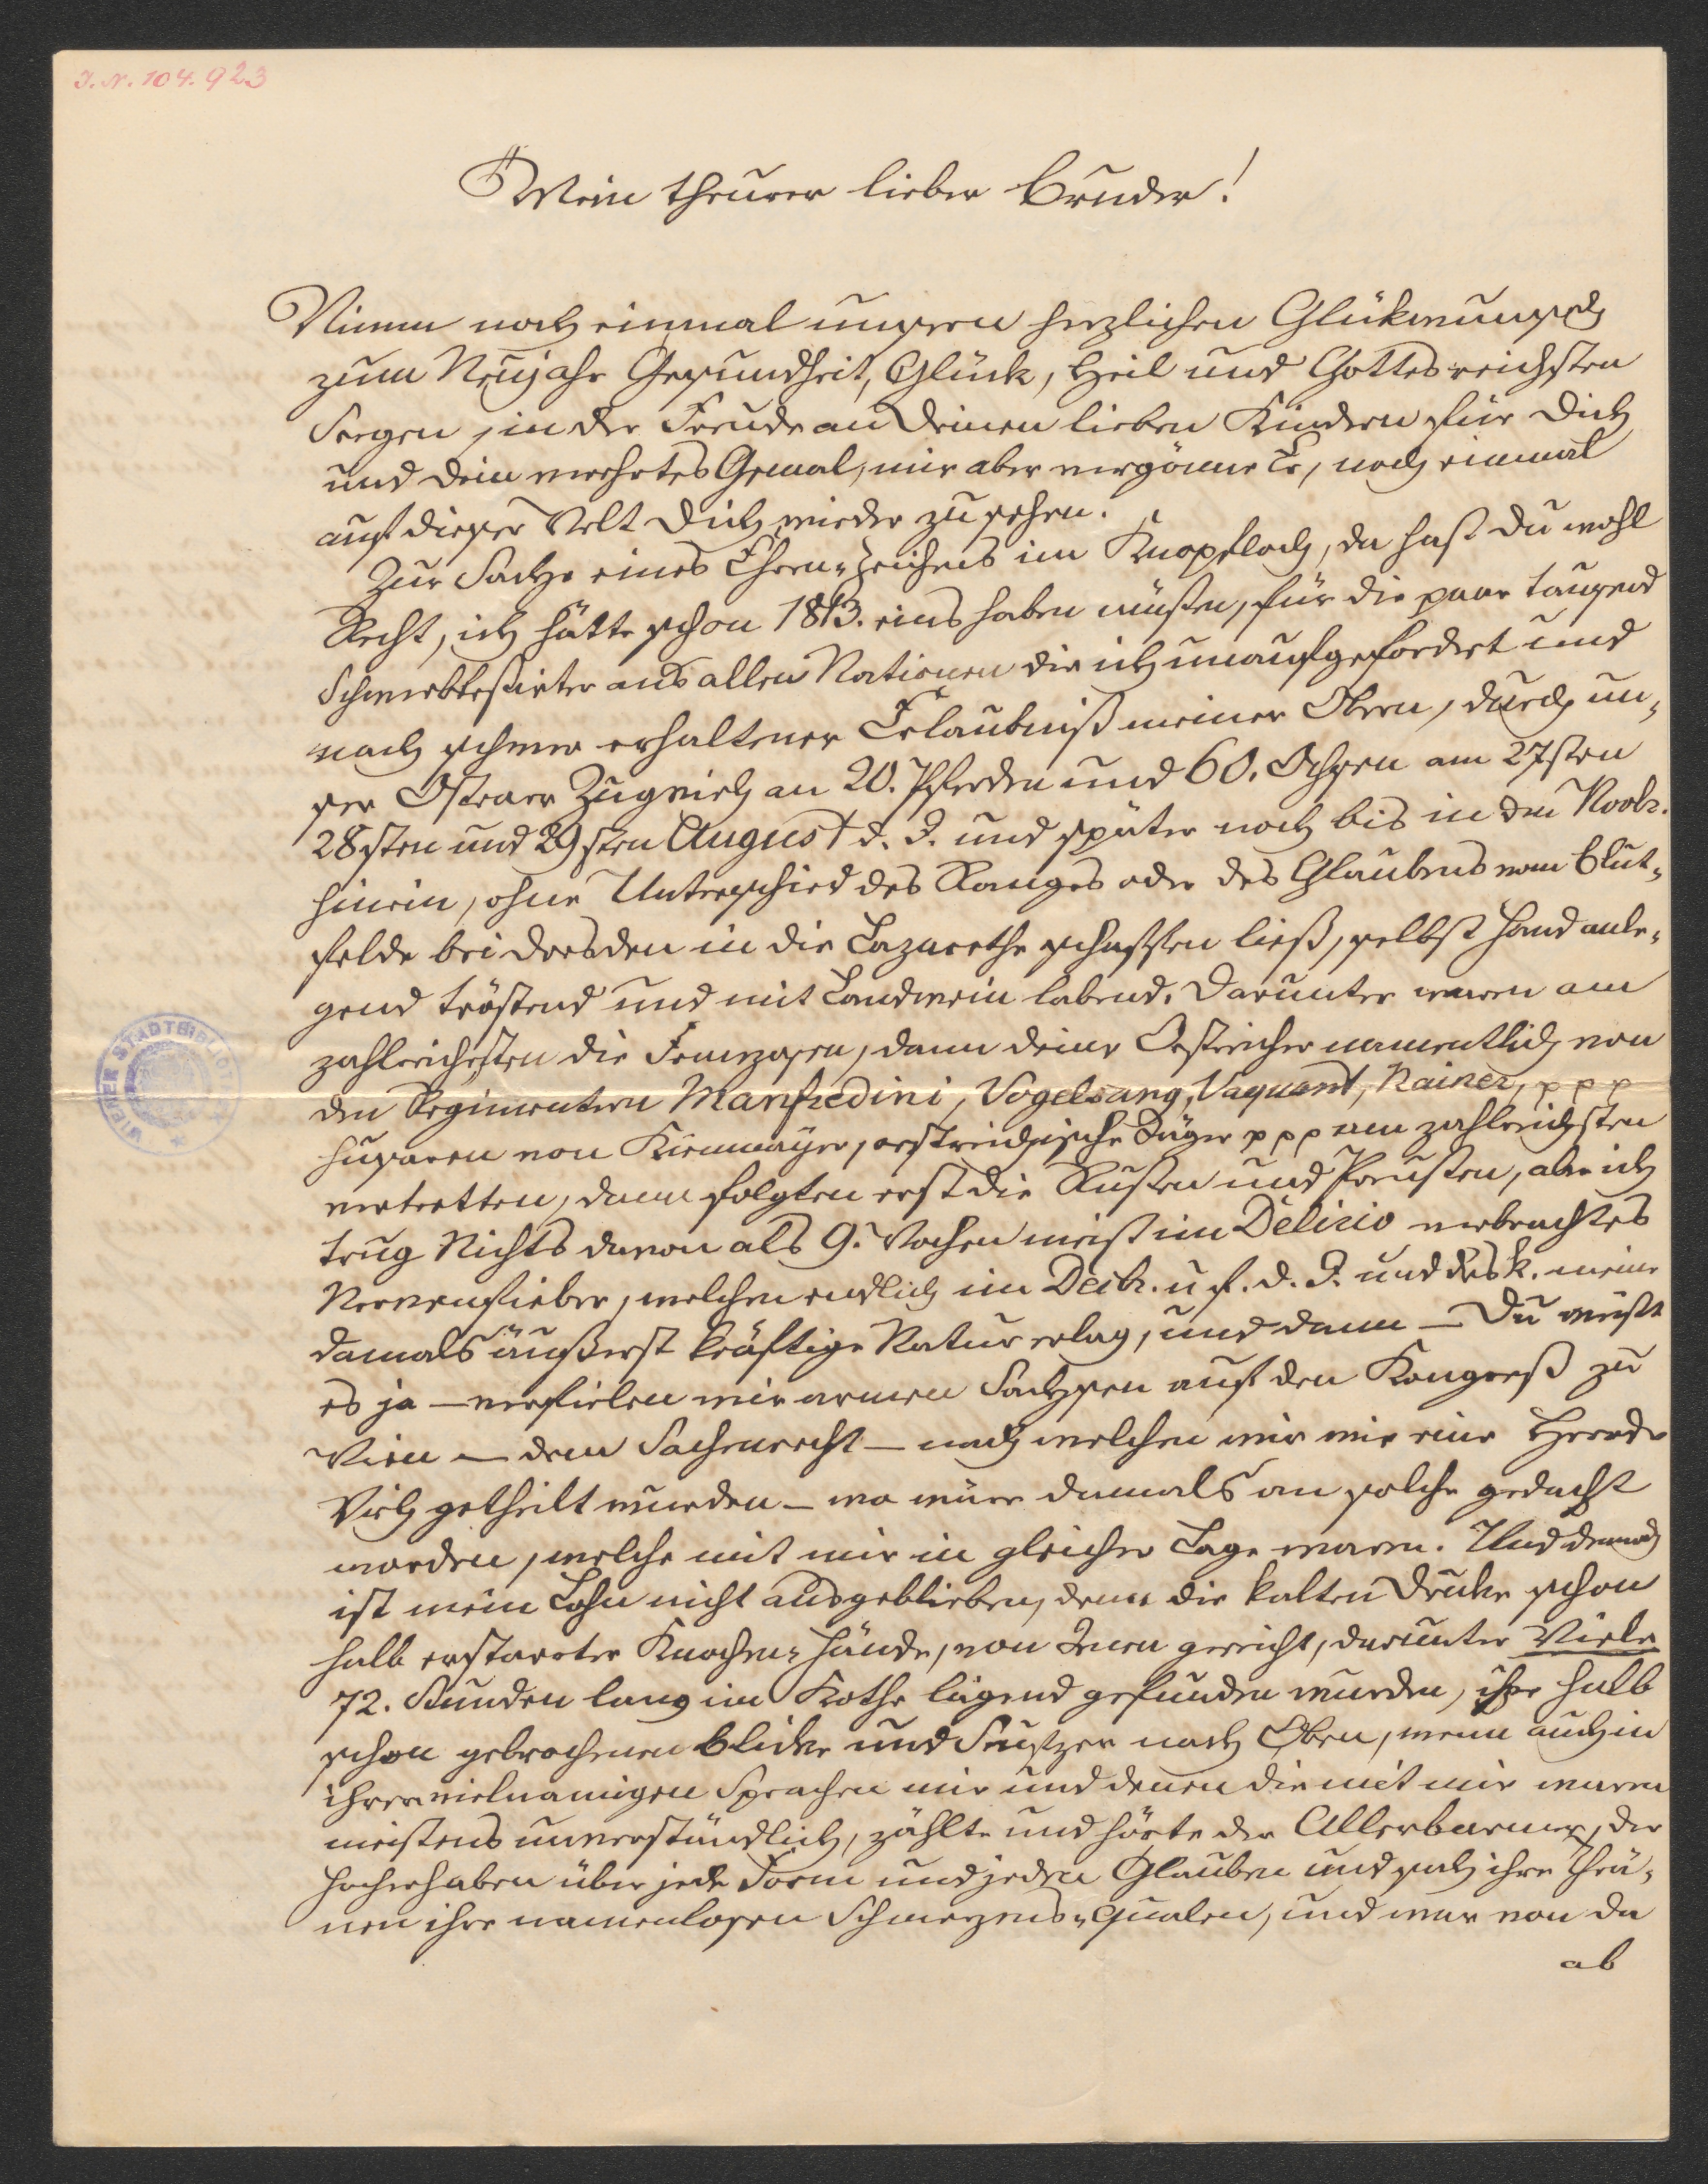 I. N. 104.923
Mein theurer lieber Bruder!
Nimm noch einmal unsern herzlichen Glükwunsch
zum Neujahr Gesundheit, Glück, Heil und Gottes reichsten
Seegen, in der Freude an Deinen lieben Kindern für Dich
und Dein verehrtes Gemal, mir aber vergönne Er, noch einmal
auf dieser Welt Dich wieder zu sehen.
Zur Sache eines Ehren-Zeichens im Knopfloch, da hast Du wohl
Recht, ich hätte schon 1813. eins haben müßen, für die paar tausend
Schwerbleßirter aus allen Nationen die ich unaufgefordert und
nach schwer erhaltener Erlaubniß meiner Obern, durch un-
ser Ostraer Zugvieh an 20. Pferden und 60. Ochsen am 27sten
28sten und 29sten August d. J. und später noch bis in den Novbr.
hinein, ohne Unterschied des Ranges oder des Glaubens vom Blut-
felde bei Dresden in die Lazarethe schaffen ließ, selbst Hand anle-
gend tröstend und mit Landwein labend. Darunter waren am
zahlreichsten die Franzosen, dann Deine Oestreicher namentlich von
den Regimentern Manfredini, Vogelsang, Vaquant, Rainer, p p p
Husaren von Kienmayer, oestreichische Jäger p p p am zahlreichsten
vertretten, dann folgten erst die Rußen und Preußen, aber ich
trug Nichts davon als 9. Wochen meist im Delirio verbrachtes
Nervenfieber, welchem endlich im Decbr. u f. d. J. und des k. meine
damals äußerst kräftige Natur erlag, und dann — Du weißt
es ja — verfielen wir armen Sachsen auf den Kongreß zu
Wien — dem Sachenrecht — nach welchem wir wie eine Heerde
Vieh getheilt wurden — wo wäre damals an solche gedacht
worden, welche mit mir in gleicher Lage waren. Und dennoch
ist mein Lohn nicht ausgeblieben, denn die kalten Drüke schon
halb erstarrter Knochen-Hände, von Jenen gereicht, darunter Viele
72. Stunden lang im Kothe liegend gefunden wurden, ihre halb
schon gebrochenen Blicke und Seufzer nach Oben, wenn auch in
ihren vielnamigen Sprachen mir und denen die mit mir waren
meistens unverständlich, zählte und hörte der Allerbarmer, der
Hocherhaben über jede Form und jeden Glauben und sah ihre Thrä-
nen ihre namenlosen Schmerzens-Qualen, und war von da
ab
WIENER STADTBIBLIOTHEK